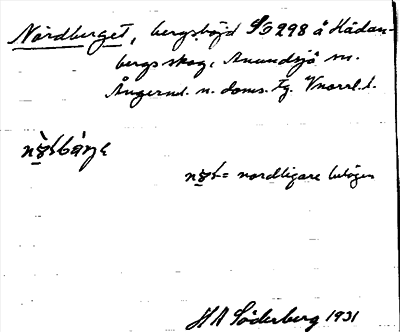 Nordberget, bergshöjd S/O 298 å Hädan-
bergs skog, Anundsjö sn.
Ångerml. n. doms. tg. Vnorrl. l.
= nordligare belägen
H A Söderberg 1931